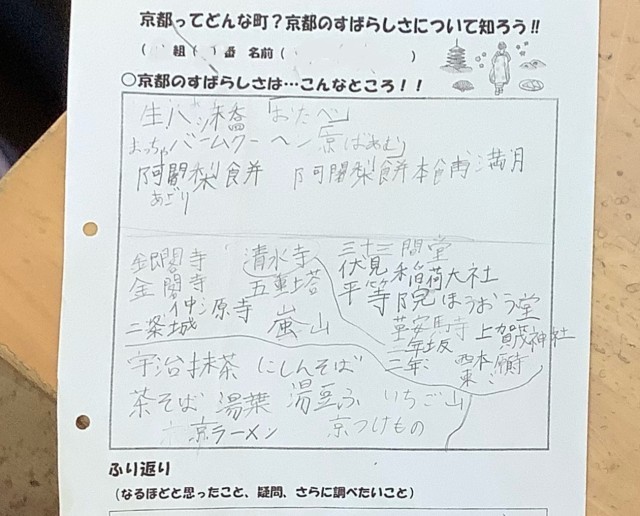 京都ってどんな町？京都のすばらしさについて知ろう!!
(　組(　)番　名前(　　　)
○京都のすばらしさは…こんなところ！！
生八ッ橋「おたべ」
おっちゃバームクーヘン「京ばあむ」
阿闍梨餅　阿闍梨餅本舗満月
あざり
銀閣寺　清水寺　三十三間堂
金閣寺　五重塔　伏見稲荷大社
仲源寺　平等院ほうおう堂
二条城　嵐山　鞍馬寺　上賀茂神社
三年坂
二年〃　西本願寺
東〃
宇治抹茶　にしんそば
茶そば　湯葉　湯豆ふ　いちご山
京ラーメン　京つけもの
ふり返り
(なるほどと思ったこと、疑問、さらに調べたいこと)